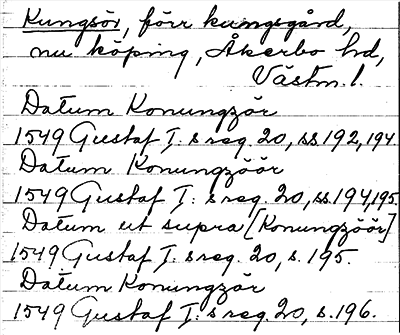 Kungsör, förr kungsgård,
nu köping, Åkerbo hd,
Västm. l.
Datum Konungzör
1549 Gustaf I: s reg. 20, ss. 192, 194
Datum Konungzöör
1549 Gustaf I: s reg. 20, ss. 194, 195.
Datum ut supra [Konungzöör]
1549 Gustaf I: s reg. 20, s. 195.
Datum Konungzör
1549 Gustaf I: s reg. 20, s. 196.